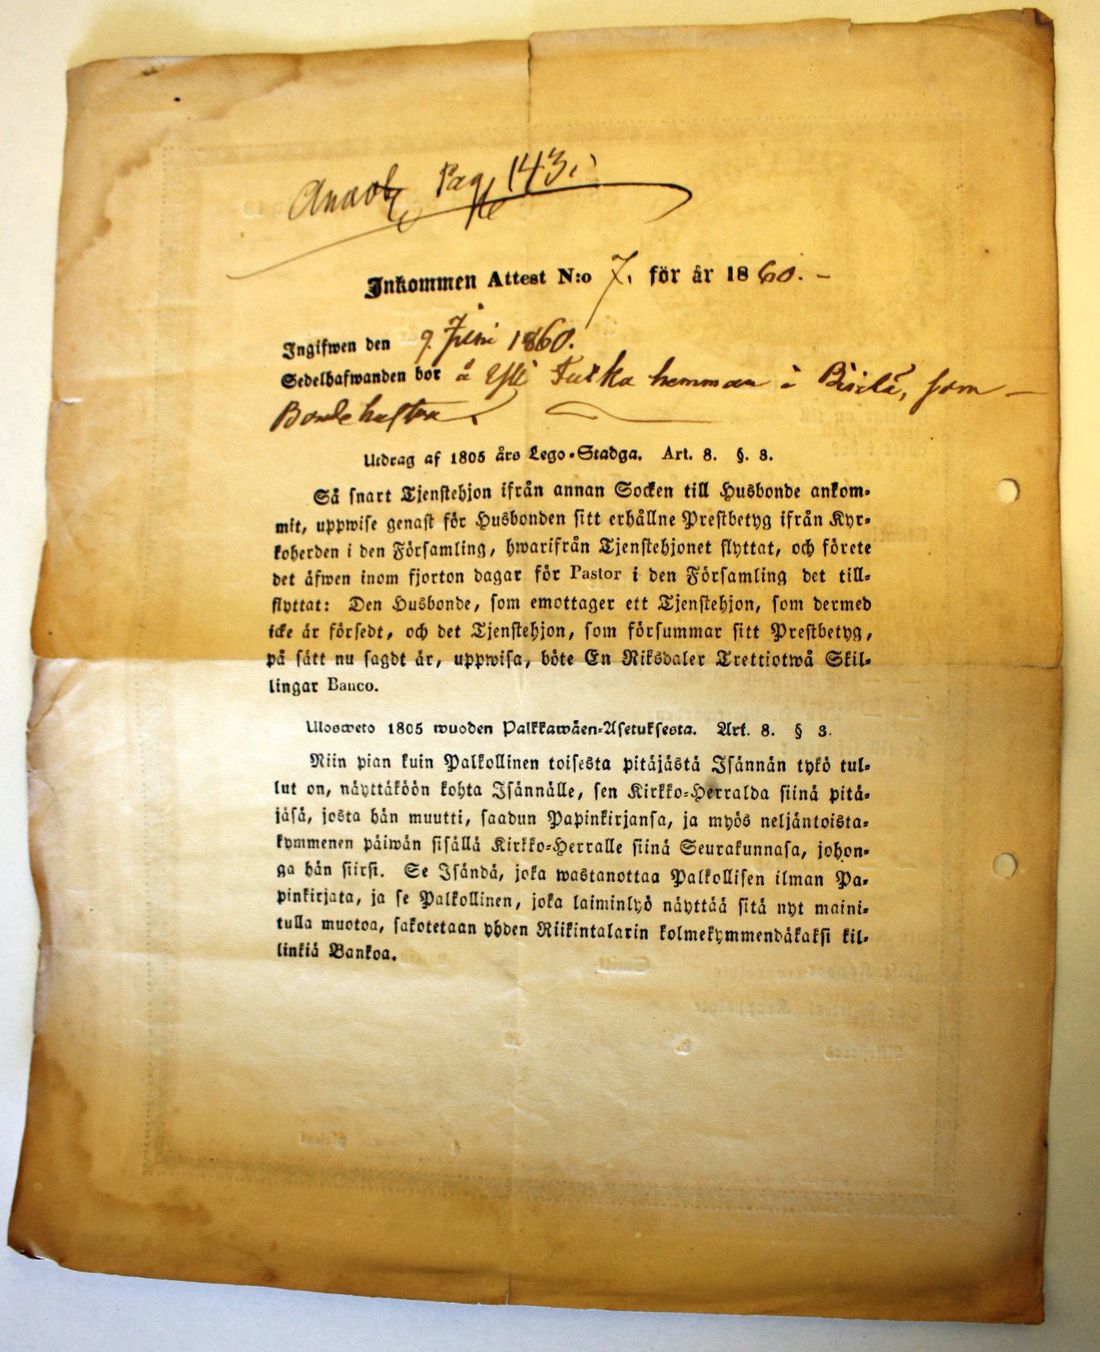 Pag 143.
Inkommen Attest N:o 7. för år 1860. –
Ingifwen den 9. Juni 1860.
Sedelhafwanden bor å Yli Turkka hemman i, som –
Bondehustru.
Utdrag af 1805 års Lego-Stadga. Art. 8. §. 3.
Så snart Tjenstehjon ifrån annan Socken till Husbonde ankom-
mit, uppwise genast för Husbonden sitt erhållne Prestbetyg ifrån Kyr-
koherden i den Församling, hwarifrån Tjenstehjonet flyttat, och förete
det äfwen inom fjorton dagar för Pastor i den Församling det till-
flyttat: Den Husbonde, som emottager ett Tjenstehjon, som dermed
icke är försedt, och det Tjenstehjon, som försummar sitt Prestbetyg,
på sätt nu sagdt är, uppwisa, böte En Riksdaler Trettiotwå Skil-
lingar Banco.
Ulosweto 1805 wuoden Palkkawäen-Asetuksesta. Art. 8. § 3.
Niin pian kuin Palkollinen toisesta pitäjästä Isännän tykö tul-
lut on, näyttäköön kohta Isännälle, sen Kirkko-Herralda siinä pitä-
jäsä, josta hän muutti, saadun Papinkirjansa, ja myös neljäntoista-
kymmenen päiwän sisällä Kirkko-Herralle siinä Seurakunnasa, johon-
ga hän siirsi. Se Isändä, joka wastanottaa Palkollisen ilman Pa-
pinkirjata, ja se Palkollinen, joka laiminlyö näyttää sitä nyt maini-
tulla muotoa, sakotetaan yhden Riikintalarin kolmekymmendäkaksi kil-
linkiä Bankoa.